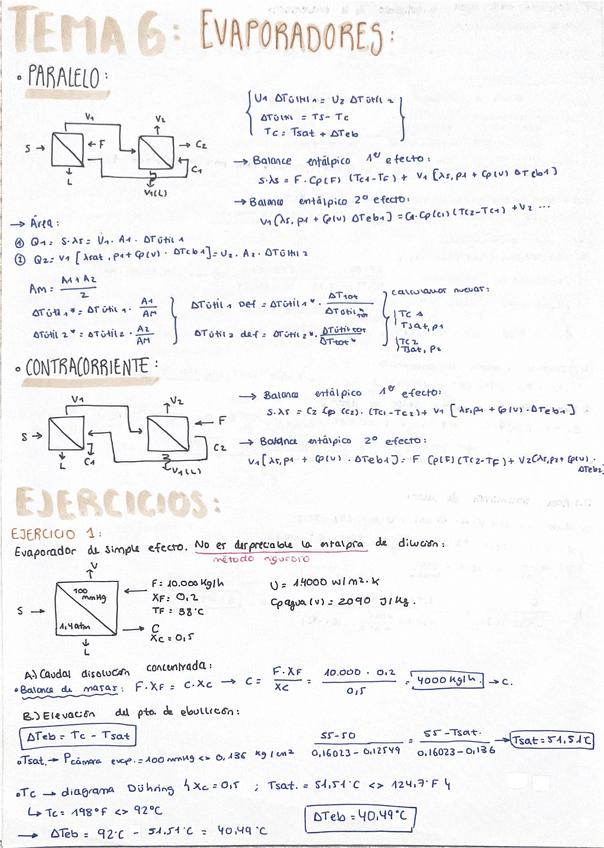 TEMA 6: EVAPORADORES:
• PARALELO:
V1
V2
S → ← F → C2
C1
L
V1(L)
U1 ΔTútil1 = U2 ΔTútil 2
ΔTútil = Ts - Tc
Tc = Tsat + ΔTeb
→ Balance entálpico 1er efecto:
S·λs = F·Cp(F) (Tc1-TF) + V1 [λs,p1 + Cp(v) ΔTeb1]
→ Balance entálpico 2º efecto:
V1[λs,p1 + Cp(v) ΔTeb1] = C2·Cp(c2)(Tc2-Tc1) + V2 ...
→ Área:
① Q1 = S·λs = U1 · A1 · ΔTútil 1
② Q2 = V1 [λsat,p1 + Cp(v) · ΔTeb1] = U2 · A2 · ΔTútil 2
Am = A1 + A2 / 2
ΔTútil 1* = ΔTútil 1 · A1 / Am
ΔTútil 2* = ΔTútil 2 · A2 / Am
ΔTútil 1 Def = ΔTútil 1* · ΔTtot / ΔTútil* tot
ΔTútil 2 def = ΔTútil 2* · ΔTútil tot / ΔTtot*
calculamos nuevas:
Tc 1
Tsat, p1
Tc2
Tsat, p2
• CONTRACORRIENTE:
V1
V2
S → ← F
C2
L C1 V1(L)
→ Balance entálpico 1er efecto:
S·λs = C2 Cp (c2) · (Tc1-Tc2) + V1 [λs,p1 + Cp(v) · ΔTeb1]
→ Balance entálpico 2º efecto:
V1[λs,p1 + Cp(v) · ΔTeb1] = F Cp(F)(Tc2-TF) + V2(λs,p2 + Cp(v) · ΔTeb2
EJERCICIOS:
EJERCICIO 1:
Evaporador de simple efecto. No es despreciable la entalpia de dilución:
método riguroso
V
100 mmHg
S →
1,4 atm
L
F: 10.000 kg/h
XF = 0,2
TF = 38°C
C
Xc = 0,5
U = 14000 W/m²·K
Cp agua (v) = 2090 J/kg.
A) Caudal disolución concentrada:
• Balance de masas: F·XF = C·Xc → C = F·XF / Xc = 10.000 · 0,2 / 0,5 = 4000 kg/h. → C.
B) Elevación del pto de ebullición:
ΔTeb = Tc - Tsat
• Tsat → Pcámara evap. = 100 mmHg <> 0,136 kg/cm²
55-50 / 0,16023 - 0,12549 = 55 - Tsat. / 0,16023 - 0,136 → Tsat = 51,51°C
• Tc → diagrama Dühring ↳ Xc = 0,5 ; Tsat. = 51,51°C <> 124,7°F ↲
↳ Tc = 198°F <> 92°C
→ ΔTeb = 92°C - 51,51°C = 40,49°C
ΔTeb = 40,49°C